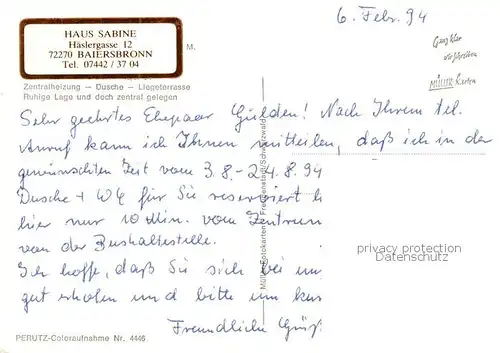 6. Febr. 94
HAUS SABINE
Häslergasse 12
72270 BAIERSBRONN
Tel. 07442 / 37 04
M.
Zentralheizung — Dusche — Liegeterrasse
Ruhige Lage und doch zentral gelegen
Sehr geehrtes Ehepaar Gulden! Nach Ihrem tel.
Anruf kann ich Ihnen mitteilen, daß ich in der
gewünschten Zeit vom 3.8.-24.8.94
Dusche + WC für Sie reserviert h
hier nur 10 Min. vom Zentrum
von der Bushaltestelle.
Ich hoffe, daß Sie sich bei un
gut erholen und bitte um kur
Freundliche Grüß
privacy protection
DATENSCHUTZ
PERUTZ-Coloraufnahme Nr. 4446